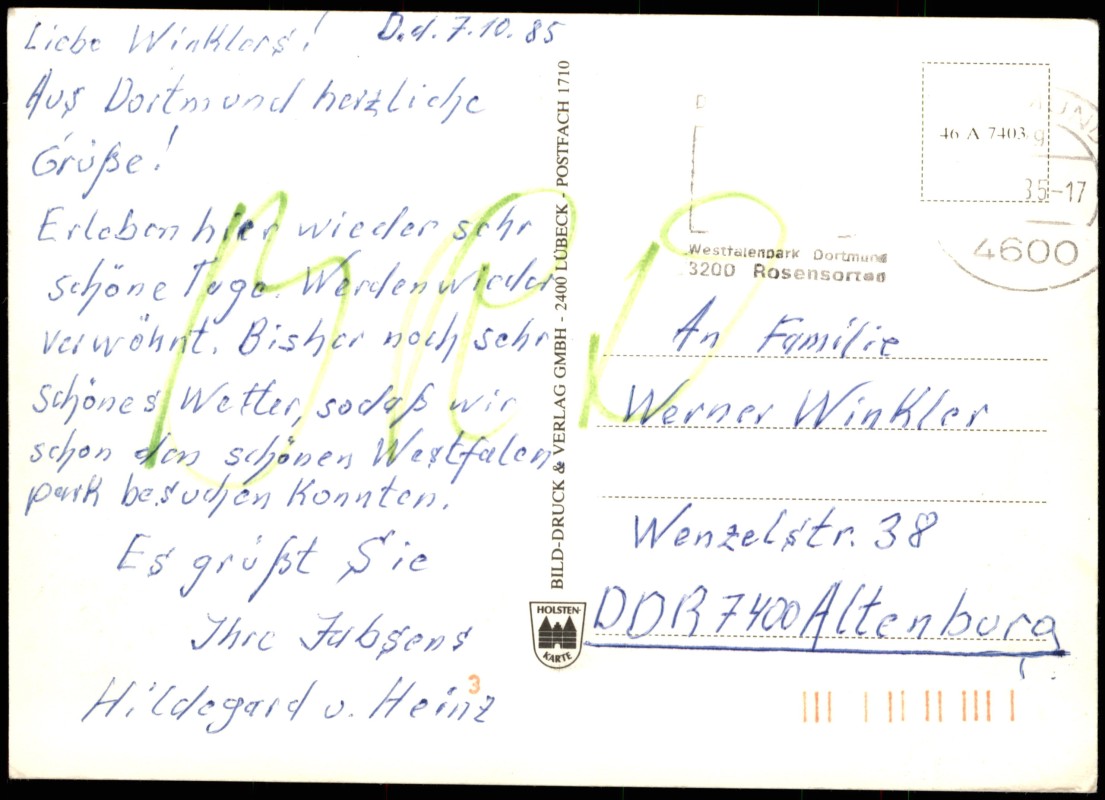 Liebe Winklers! D.d. 7.10.85
Aus Dortmund herzliche
Grüße!
Erleben hier wieder sehr
schöne Tage. Werden wieder
verwöhnt. Bisher noch sehr
schönes Wetter, sodaß wir
schon den schönen Westfalen
park besuchen konnten.
Es grüßt Sie
Ihre
Hildegard u. Heinz
3
BILD-DRUCK & VERLAG GMBH - 2400 LÜBECK - POSTFACH 1710
HOLSTEN-
KARTE
46 A 7403
85-17
4600
Westfalenpark Dortmund
3200 Rosensorten
An Familie
Werner Winkler
Wenzelstr. 38
DDR 7400 Altenburg